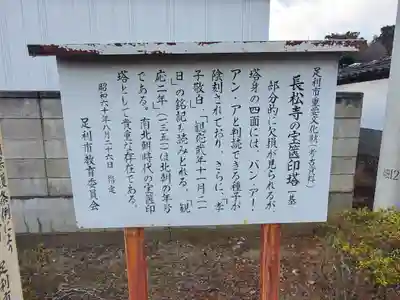 足利市重要文化財(考古資料)
長松寺の宝篋印塔 一基
部分的に欠損が見られるが、
塔身の四面には、バン・アー・
アン・アと判読できる種子が
陰刻されており、さらに、「孝
子敬白」「観応弐年十一月二一
日」の銘記も読みとれる。「観
応二年」(一三五一)は北朝の年号
である。南北朝時代の宝篋印
塔として貴重な存在である。
昭和六十年八月二十六日 指定
足利市教育委員会